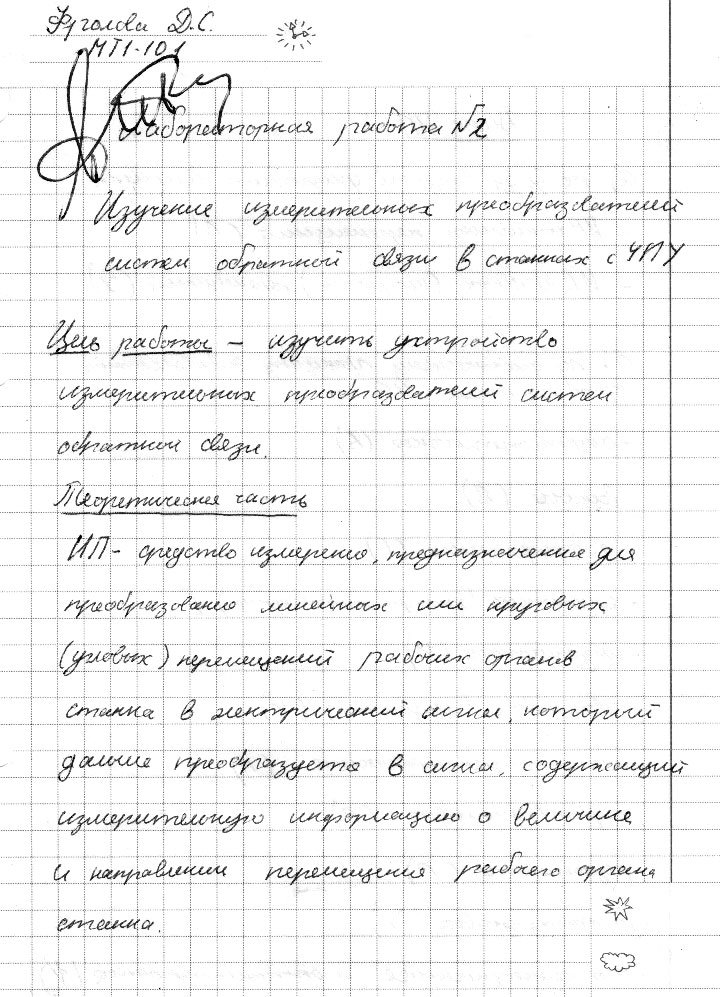 Фролова Д.С.
МТ1-101
Лабораторная работа №2
Изучение измерительных преобразователей
систем обратной связи в станках с ЧПУ
Цель работы – изучить устройство
измерительных преобразователей систем
обратной связи.
Теоретическая часть
ИП - средство измерения, предназначенное для
преобразования линейных или круговых
(угловых) перемещений рабочих органов
станка в электрический сигнал, который
дальше преобразуется в сигнал, содержащий
измерительную информацию о величине
и направлении перемещения рабочего органа
станка.